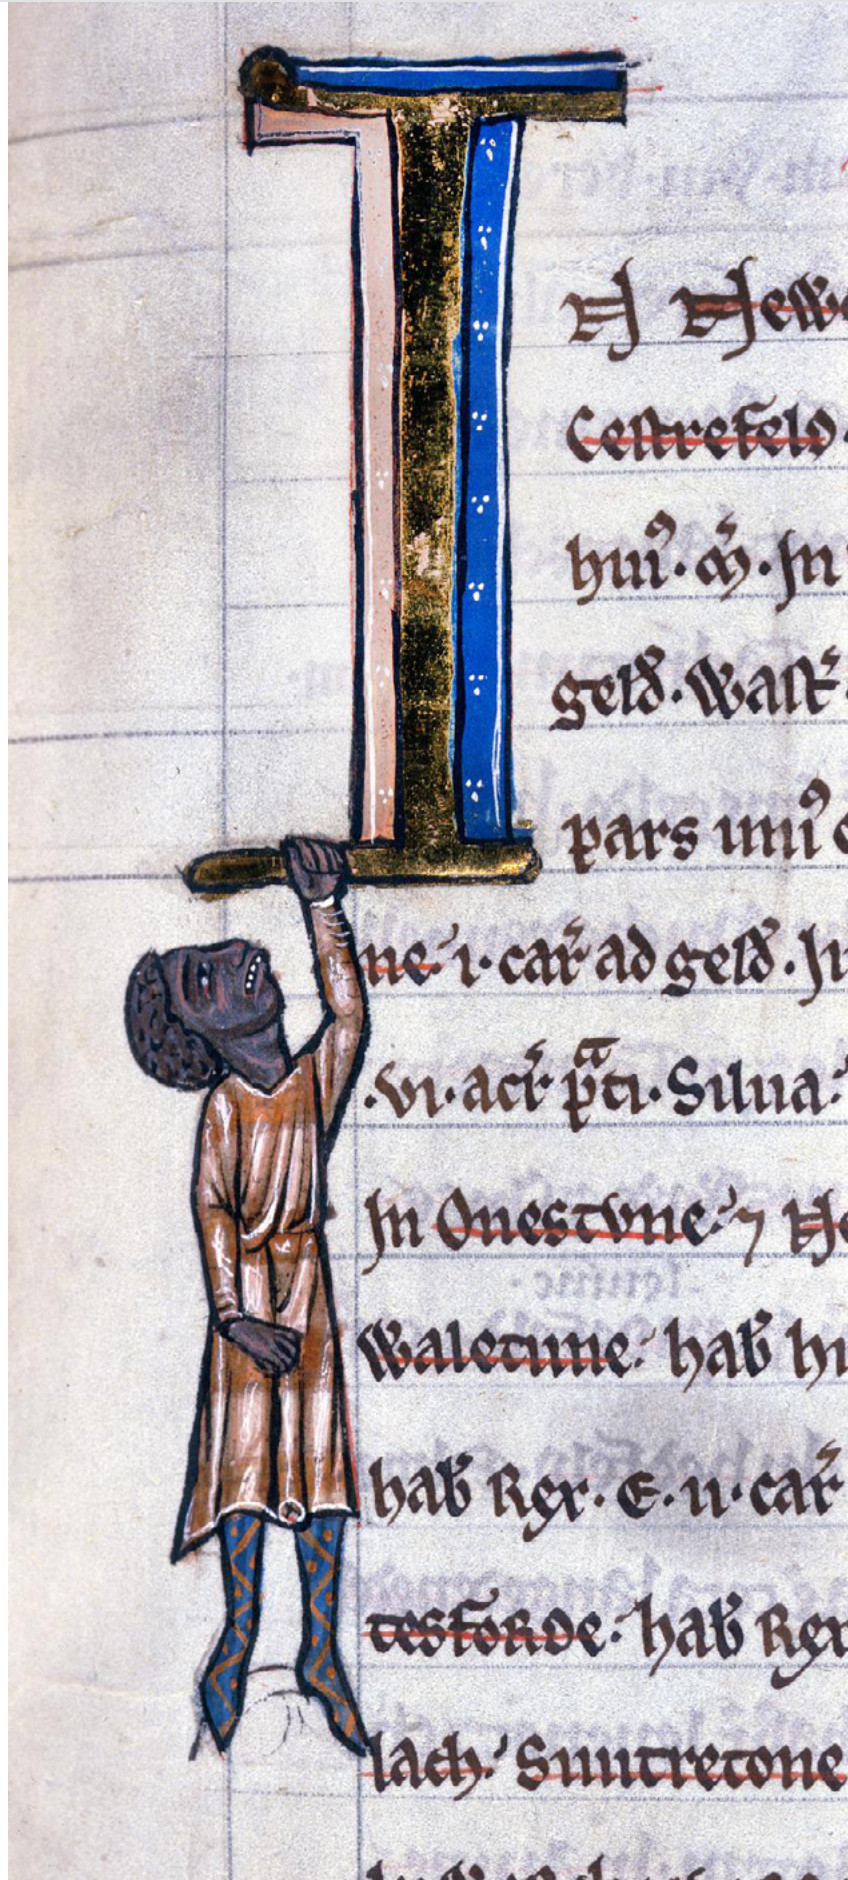 I
N New
Cestrefeld.
huıꝰ. m̃. In
geld̃. Wast̃
pars uniꝰ
ne. i. car̃ ad geld̃. In
.vi. acr̃ p̃ti. Silua.
In Onestvne. ⁊
Waletune. hab̃
hab̃ Rex. E. ii. car̃
tesforde. hab̃ Rex
lach. Suntretone